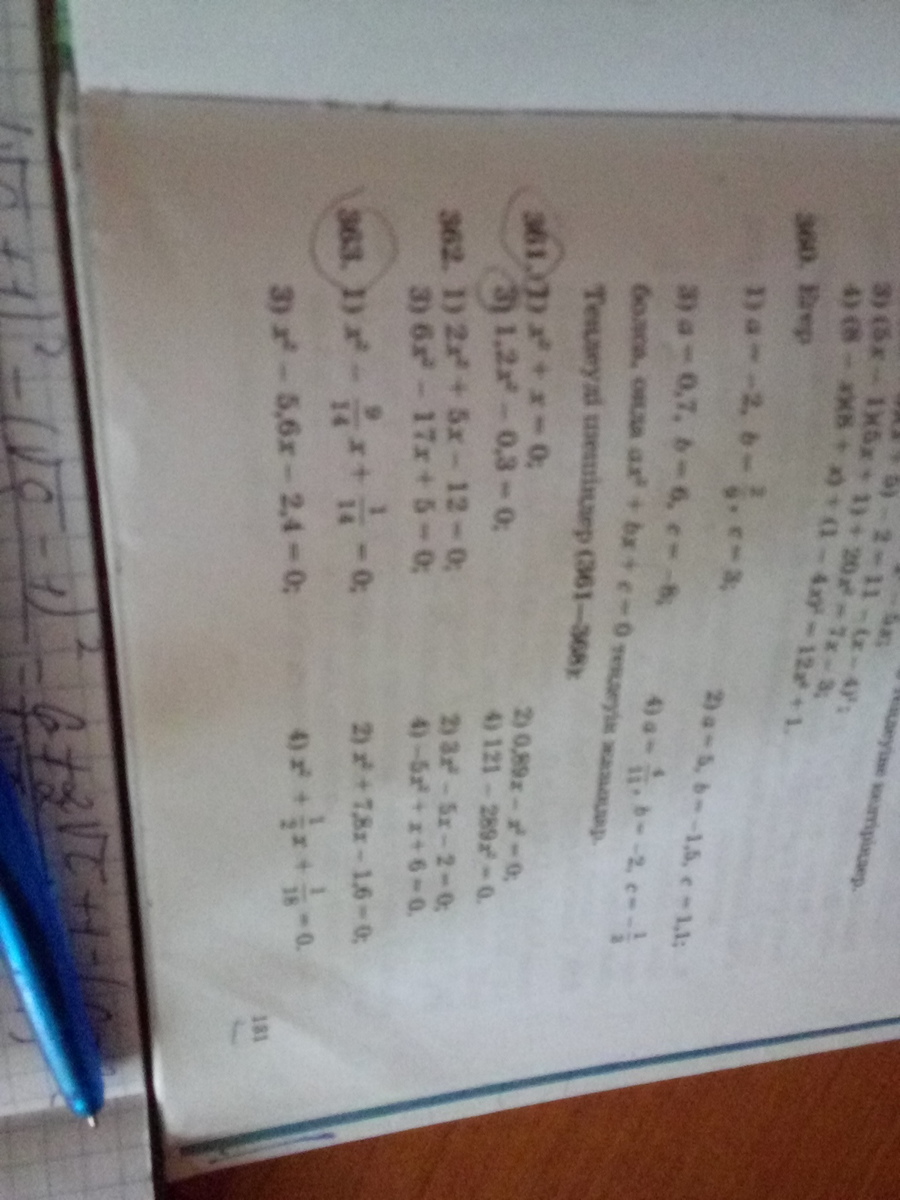 3) (5x − 1)(5x + 1) + 20x² = 7x − 3;
4) (8 − x)(8 + x) + (1 − 4x)² = 12x² + 1.
360. Егер
1) a = −2, b = , c = 3; 2) a = 5, b = −1,5, c = 1,1;
3) a = 0,7, b = 6, c = −8; 4) a = 4/11, b = −2, c = −
болса, онда ax² + bx + c = 0 теңдеуін жазыңдар.
Теңдеуді шешіңдер (361—368):
361. 1) x² + x = 0; 2) 0,89x − x² = 0;
3) 1,2x² − 0,3 = 0; 4) 121 − 289x² = 0.
362. 1) 2x² + 5x − 12 = 0; 2) 3x² − 5x − 2 = 0;
3) 6x² − 17x + 5 = 0; 4) −5x² + x + 6 = 0.
363. 1) x² − 9/14 x + 1/14 = 0; 2) x² + 7,8x − 1,6 = 0;
3) x² − 5,6x − 2,4 = 0; 4) x² + 1/2 x + 1/18 = 0.
181